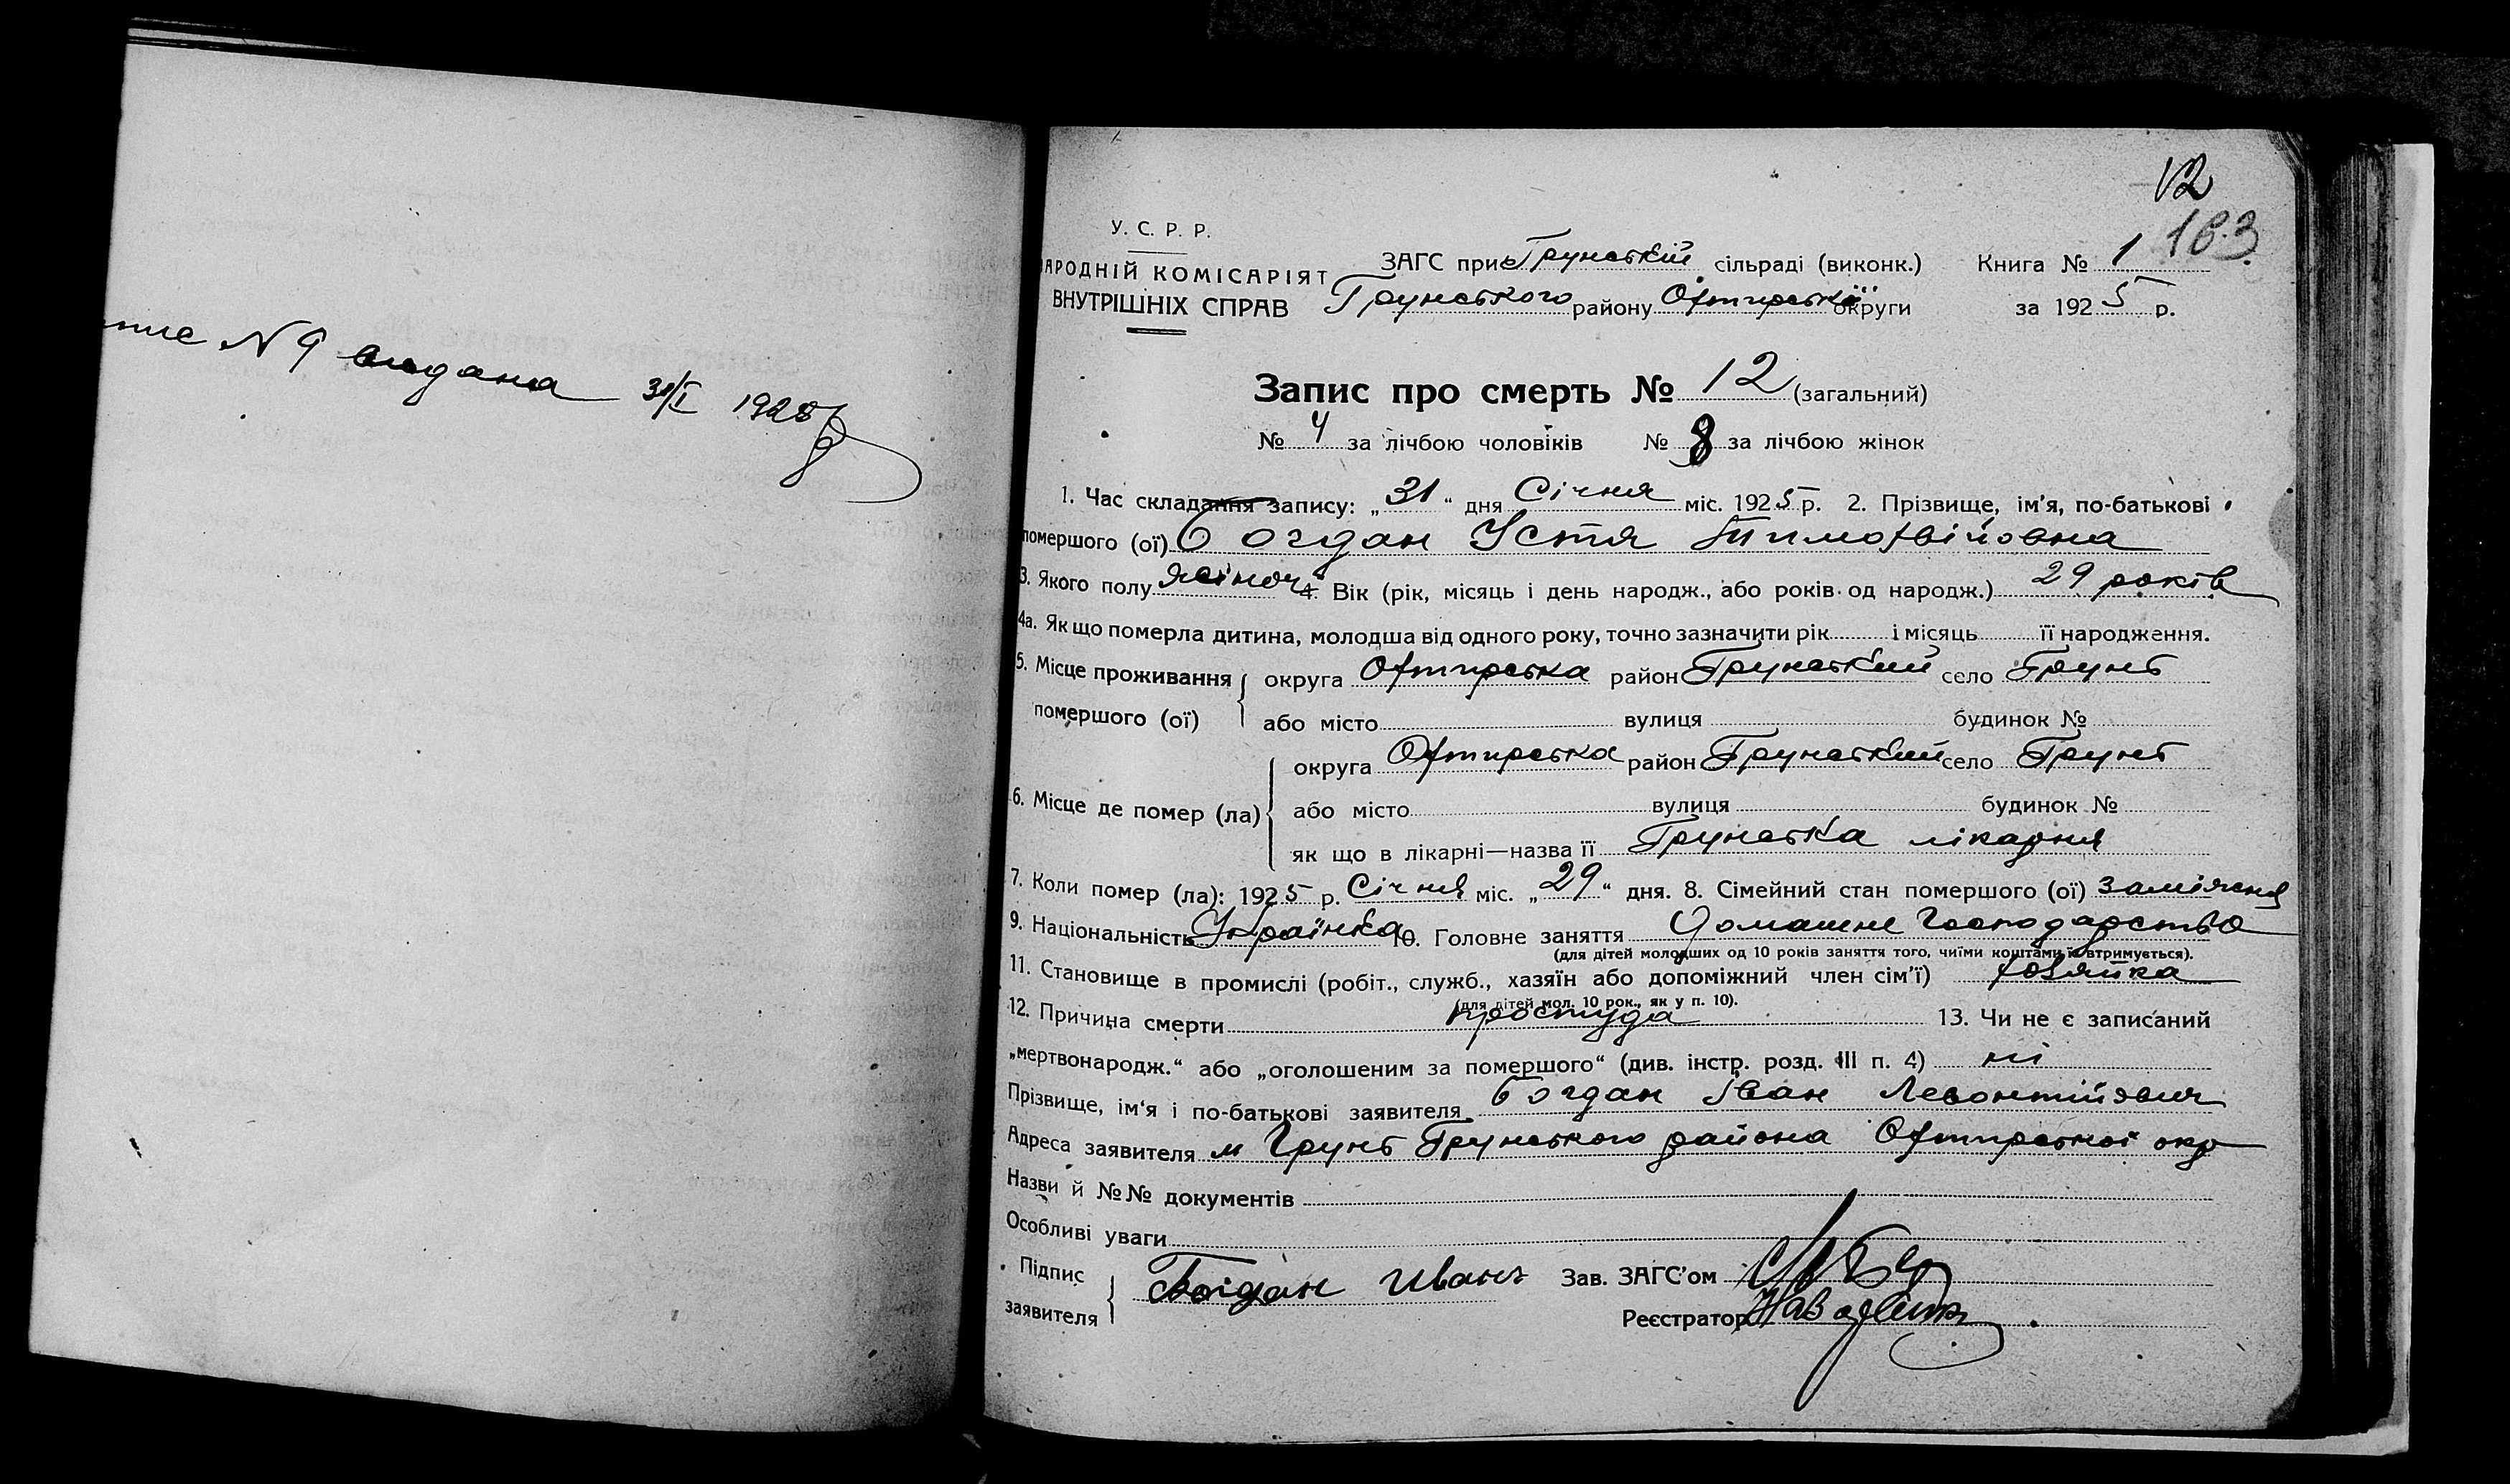 № 9 видана 31/I 1925 р
12
163
У. С. Р. Р.
НАРОДНІЙ КОМІСАРІЯТ
ВНУТРІШНІХ СПРАВ
ЗАГС при Грунській сільраді (виконк.) Книга № 1
Грунського району Охтирської округи за 1925 р.
Запис про смерть № 12 (загальний)
№ 4 за лічбою чоловіків № 8 за лічбою жінок
1. Час складання запису: „31“ дня Січня міс. 1925 р. 2. Прізвище, ім'я, по-батькові
помершого (ої) Богдан Устя Тимофвійовна
3. Якого полу жіноч 4. Вік (рік, місяць і день народж., або років од народж.) 29 років
4а. Як що померла дитина, молодша від одного року, точно зазначити рік і місяць її народження.
5. Місце проживання помершого (ої) округа Охтирська район Грунський село Грунь
або місто вулиця будинок №
6. Місце де помер (ла) округа Охтирська район Грунський село Грунь
або місто вулиця будинок №
як що в лікарні—назва її Грунська лікарня
7. Коли помер (ла): 1925 р. Січня міс. „29“ дня. 8. Сімейний стан помершого (ої) заміжня
9. Національність Українка 10. Головне заняття Домашне господарство
(для дітей молодших од 10 років заняття того, чиїми коштами їх втримується).
11. Становище в промислі (робіт., служб., хазяїн або допоміжний член сім'ї) хазяйка
(для дітей мол. 10 рок., як у п. 10).
12. Причина смерти простуда 13. Чи не є записаний
„мертвонародж.“ або „оголошеним за помершого“ (див. інстр. розд. III п. 4) ні
Прізвище, ім'я і по-батькові заявителя Богдан Іван Левонтійович
Адреса заявителя м Грунь Грунського района Охтирської окр
Назви й №№ документів
Особливі уваги
Підпис заявителя Богдан Иванъ Зав. ЗАГС'ом
Реєстратор